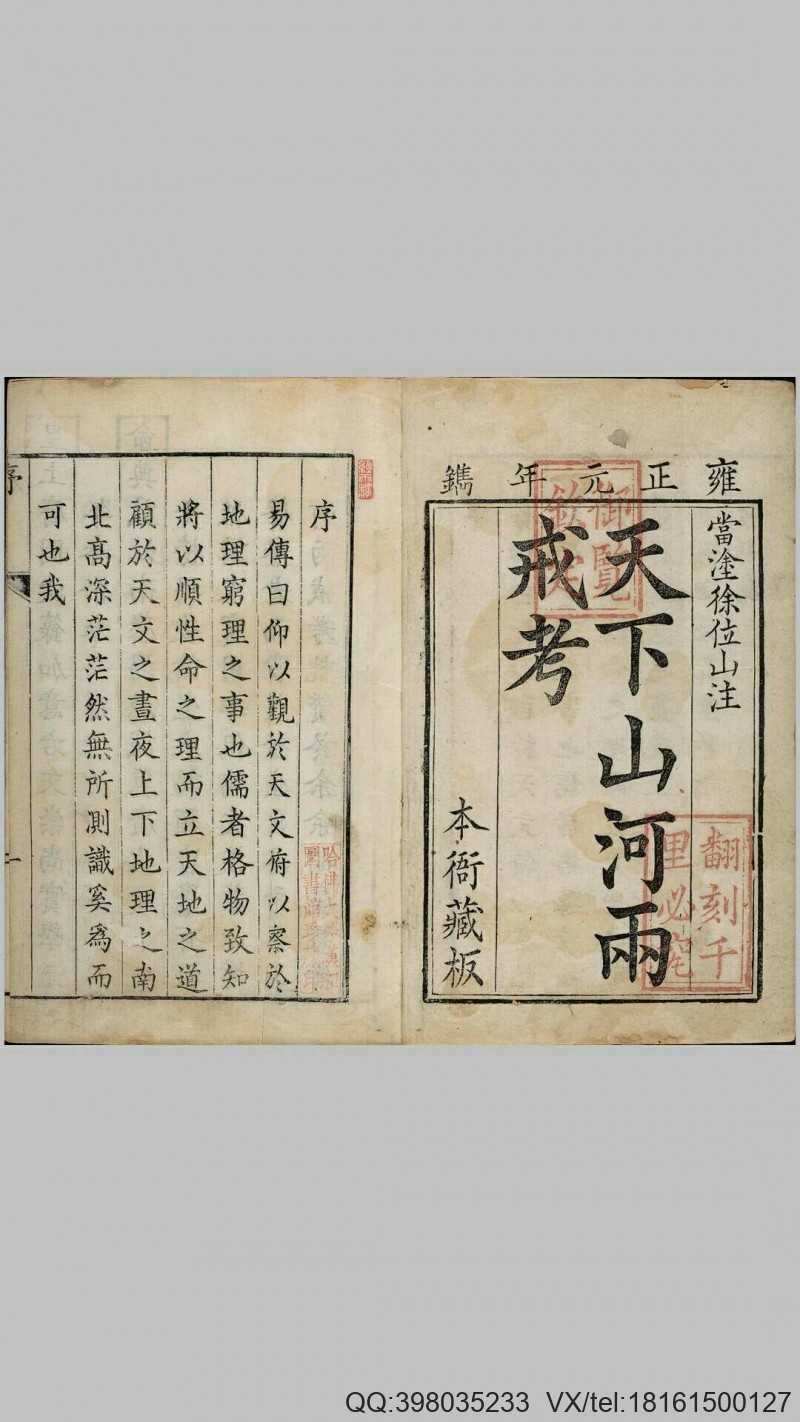 雍正元年鐫
當塗徐位山注
天下山河兩
戒考
本衙藏板
御覽
翻刻千
里必究
序
易傳曰仰以觀於天文俯以察於
地理窮理之事也儒者格物致知
將以順性命之理而立天地之道
顧於天文之晝夜上下地理之南
北高深茫茫然無所測識奚為而
可也我
序
一
QQ:398035233 VX/tel:18161500127